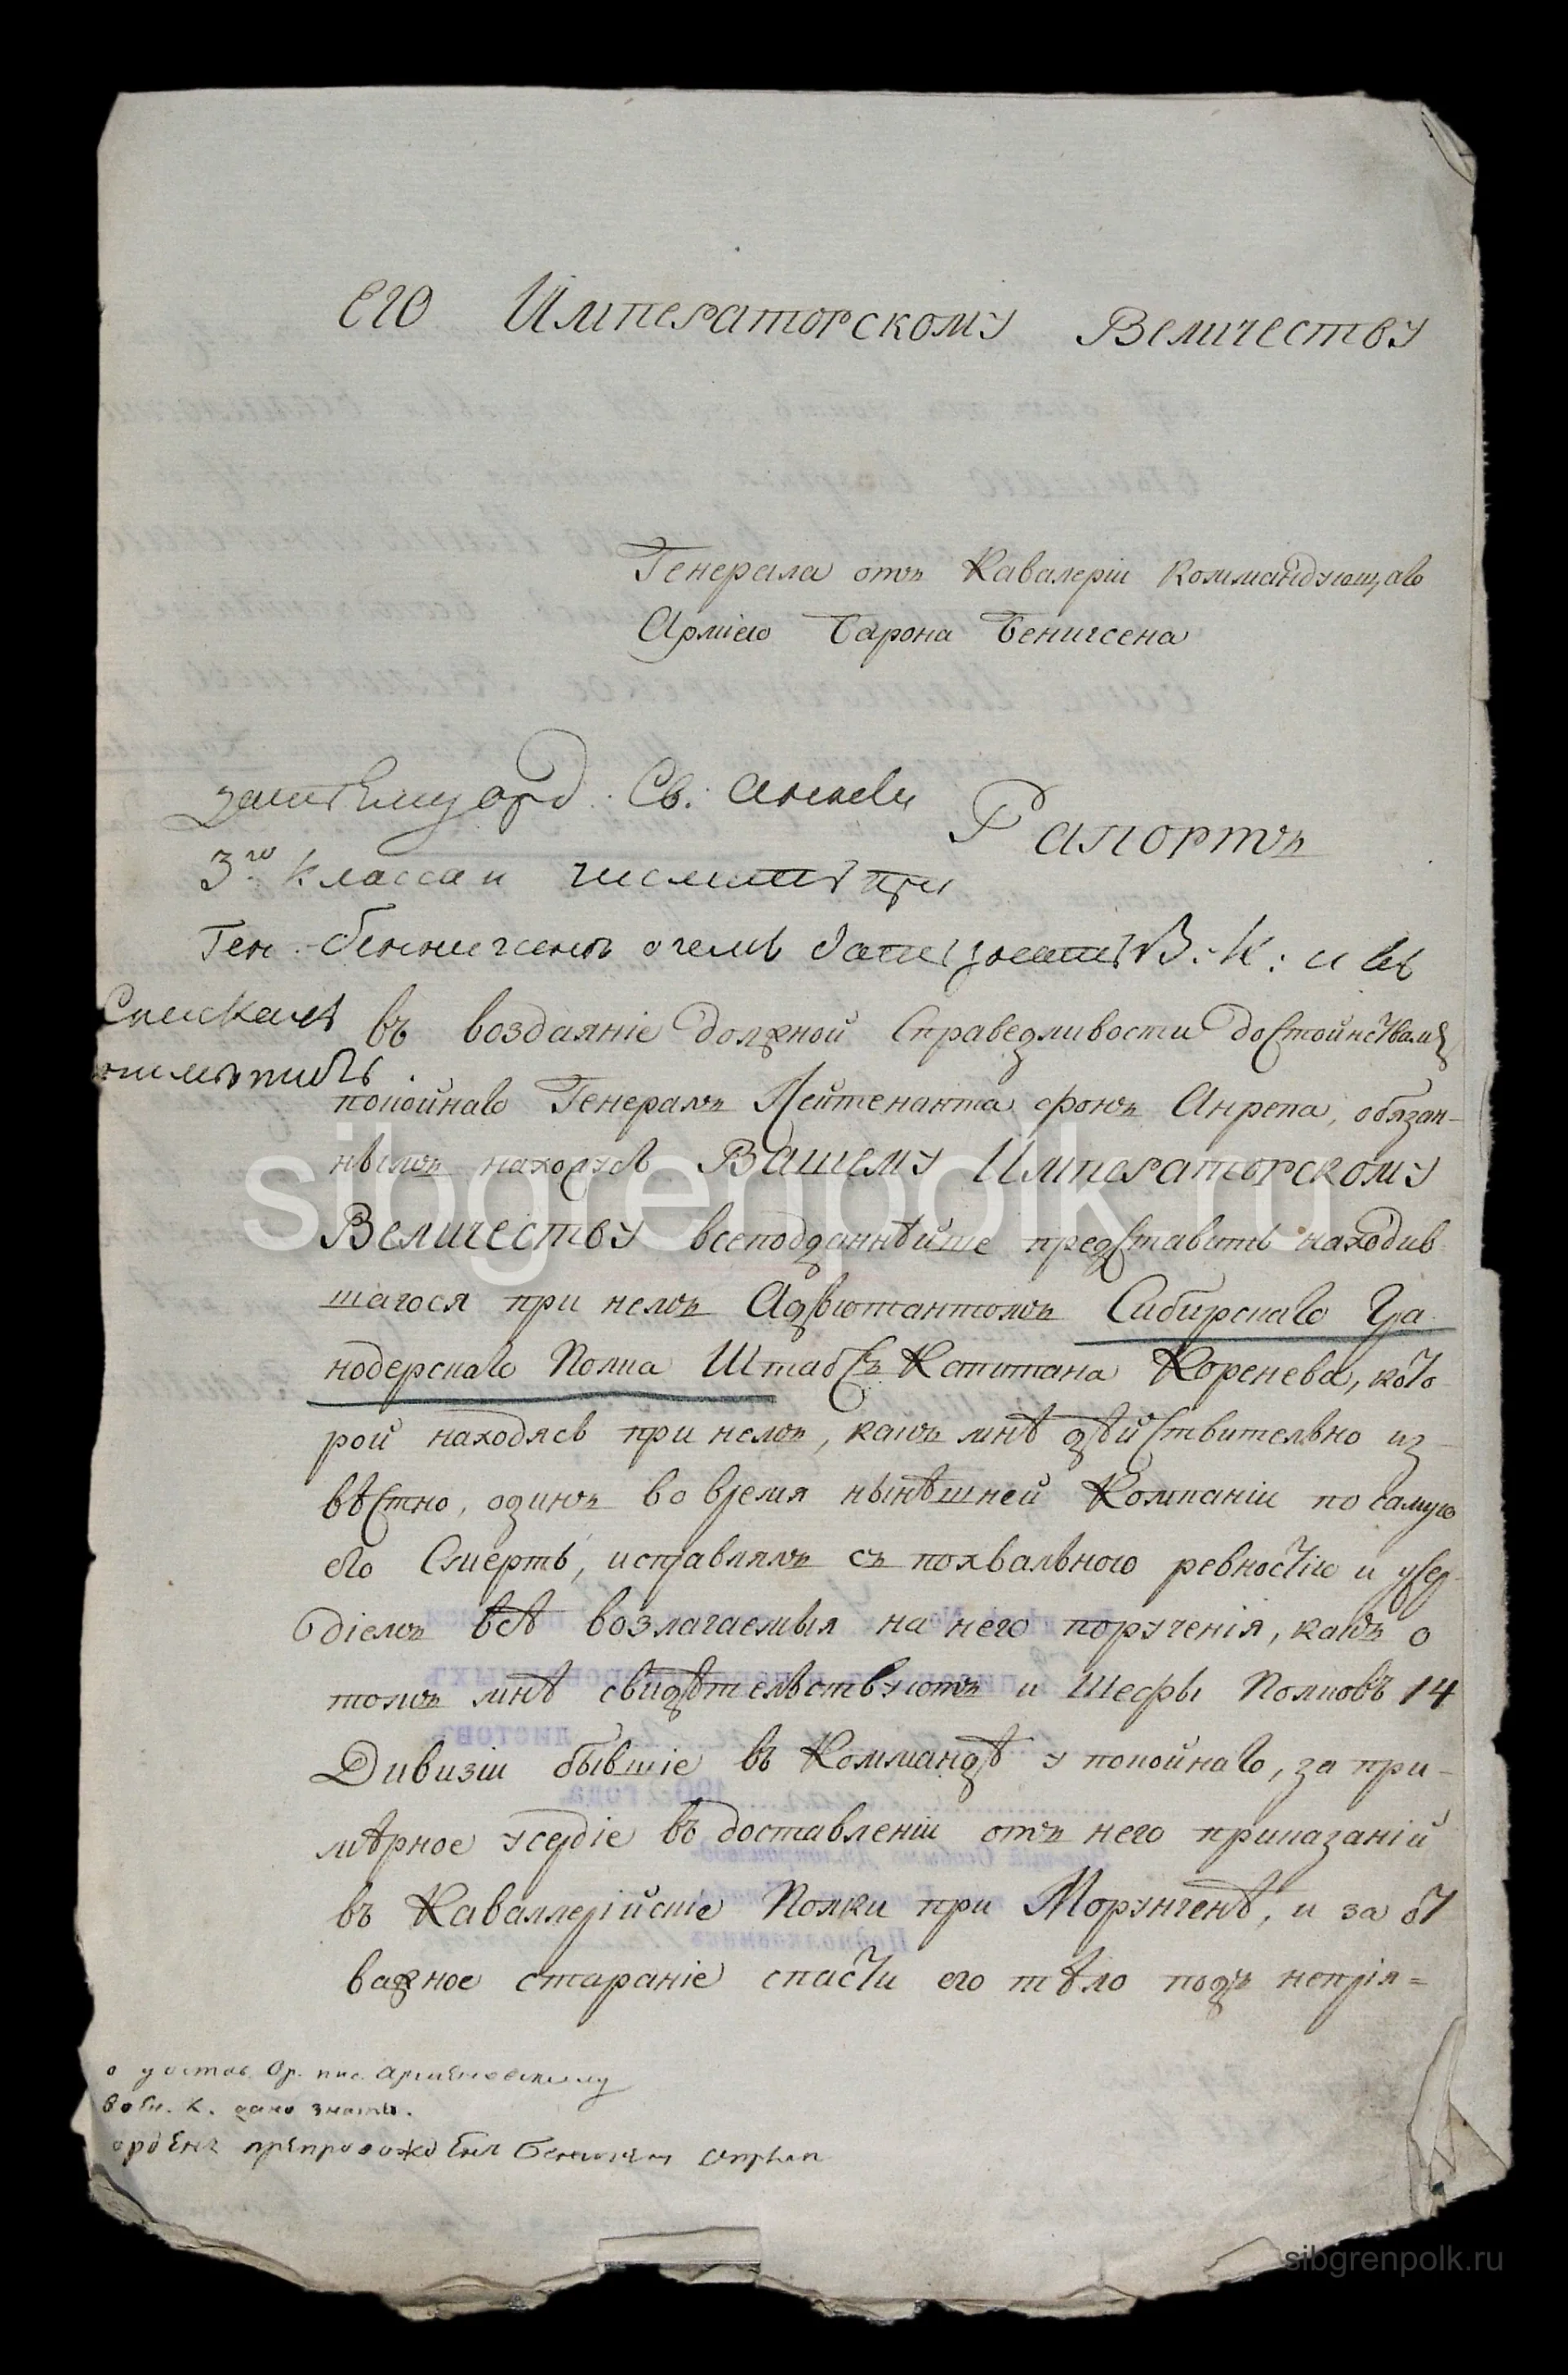 ЕГО Императорскому Величеству
Генерала отъ Кавалеріи Коммандующаго
Арміею Барона Бенигсена
Орд: Св: Анны
Рапортъ
3го класса и числить при
Ген: Беннигсенъ о чемъ В: К: и въ
Спискахъ
въ воздаяніе должной Справедливости достоинствамъ
покойнаго Генералъ Лейтенанта фонъ Анрепа, обязан-
нымъ нахожусь ВАШЕМУ Императорскому
Величеству всеподданнѣйше представить находив
шагося при немъ Адъютантомъ Сибирскаго Гра
нодерскаго Полка Штабсъ Капитана Коренева, кото
рой находясь при немъ, какъ мнѣ дѣйствительно из-
вѣстно, одинъ во время нынѣшней Компаніи по самую
его Смерть, исправлялъ съ похвальною ревностію и усер-
діемъ всѣ возлагаемыя на него порученія, какъ о
томъ мнѣ свидѣтельствуютъ и Шефы Полковъ 14
Дивизіи бывшіе въ Коммандѣ у покойнаго, за при-
мѣрное усердіе въ доставленіи отъ него приказаній
въ Каваллерійскіе Полки при Морунгенѣ, и за от
важное стараніе спасти его тѣло подъ непрія=
Ор.
К. дано знать.
орденъ препровожденъ
sibgrenpolk.ru
sibgrenpolk.ru